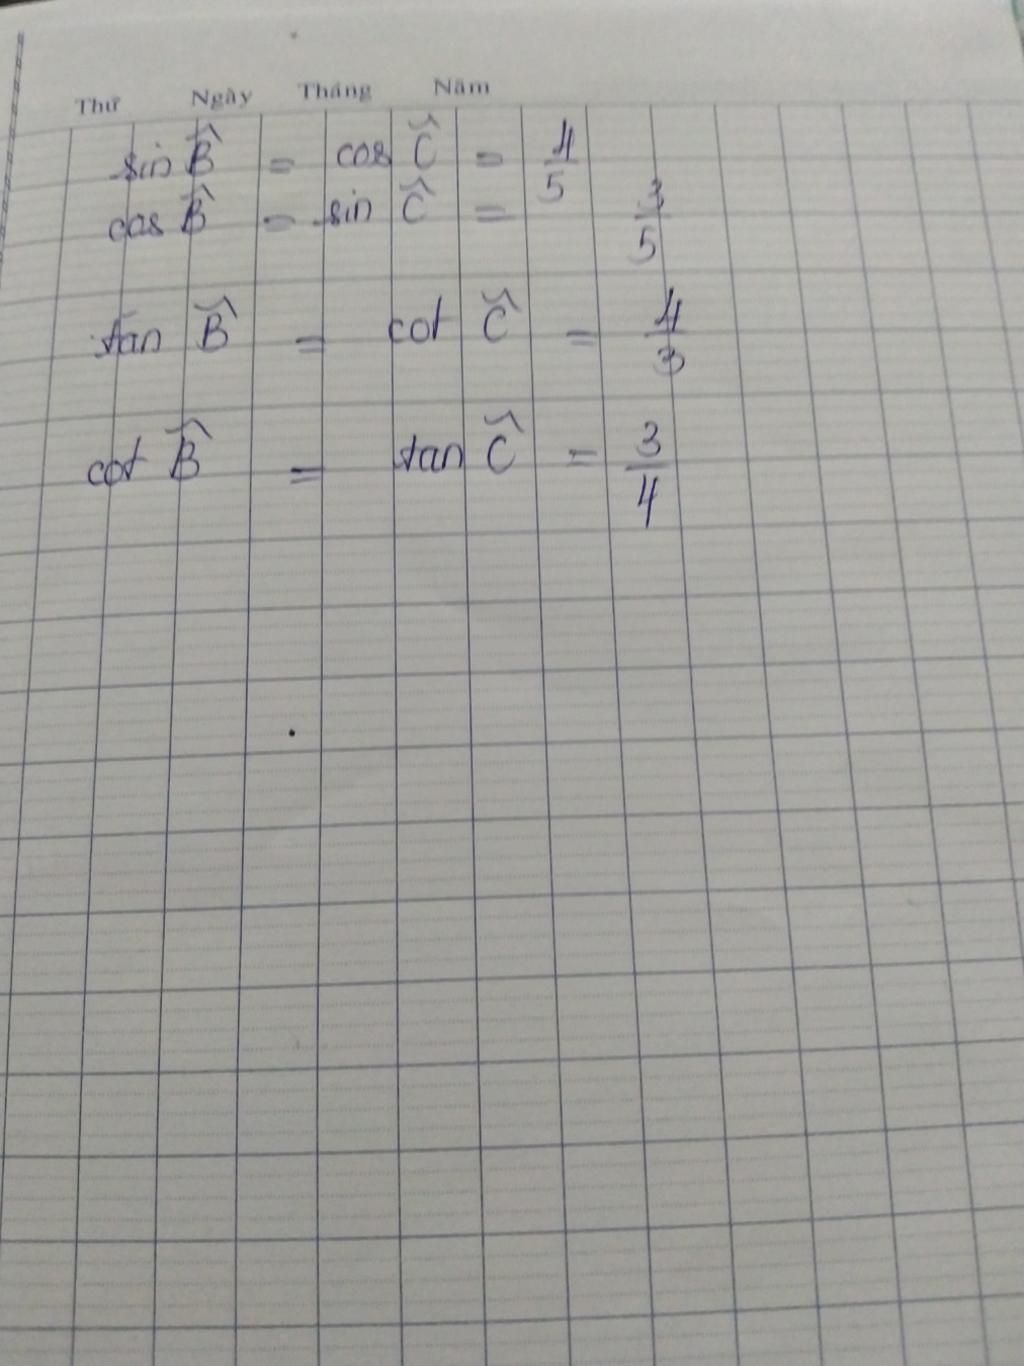 Thứ Ngày Tháng Năm
sin B̂ = cos Ĉ = 4/5
cos B̂ = sin Ĉ = 3/5
tan B̂ = cot Ĉ = 4/3
cot B̂ = tan Ĉ = 3/4